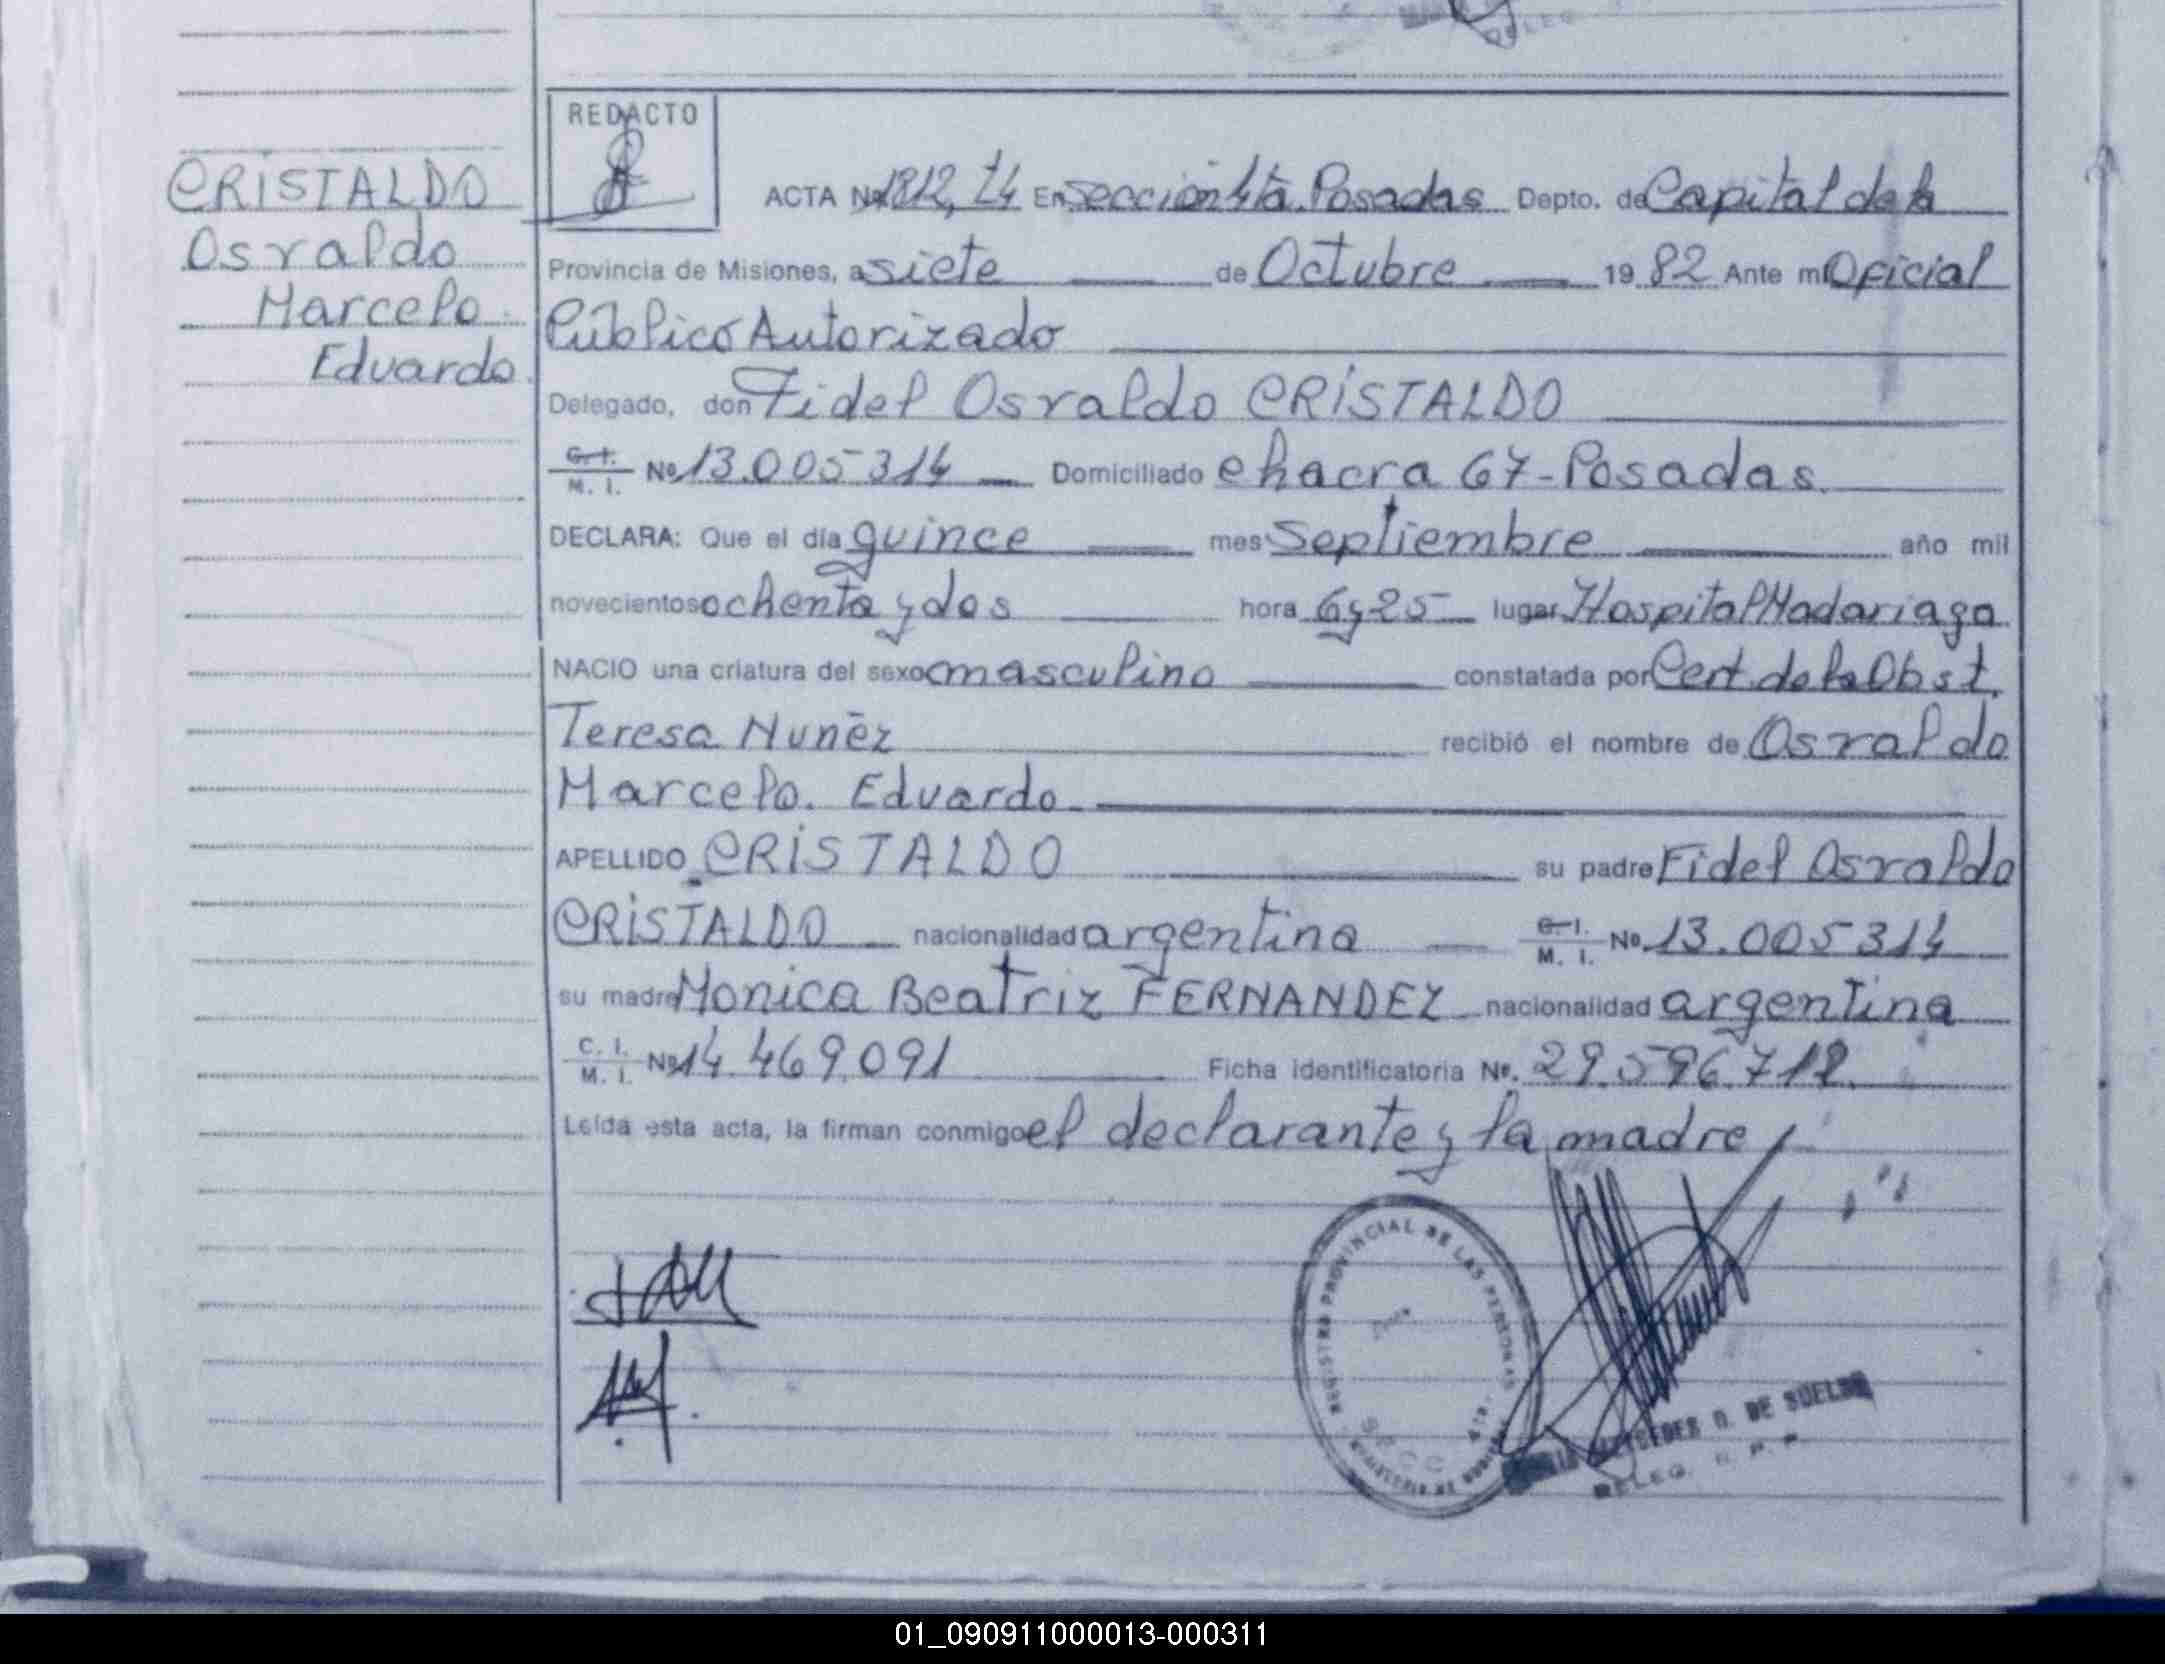 REDACTO
CRISTALDO
Osvaldo
Marcelo
Eduardo
ACTA Nº 1812, t4 En sección 4ta. Posadas Depto. de Capital de la
Provincia de Misiones, a siete de Octubre 1982 Ante mi Oficial
Público Autorizado
Delegado, don Fidel Osvaldo CRISTALDO
C. I. M. I. Nº 13.005314 Domiciliado chacra 67-Posadas.
DECLARA: Que el día quince mes Septiembre año mil
novecientos ochenta y dos hora 6y25 lugar Hospital Madariaga
NACIO una criatura del sexo masculino constatada por Cert. de la Obst.
Teresa Nuñez recibió el nombre de Osvaldo
Marcelo. Eduardo
APELLIDO CRISTALDO su padre Fidel Osvaldo
CRISTALDO nacionalidad argentina C. I. M. I. Nº 13.005314
su madre Monica Beatriz FERNANDEZ nacionalidad argentina
C. I. M. I. Nº 14.469.091 Ficha identificatoria Nº. 29.596.712
Leída esta acta, la firman conmigo el declarante y la madre
REGISTRO PROVINCIAL DE LAS PERSONAS
DE SUELDO
DELEG. R. P. P.
01_090911000013-000311